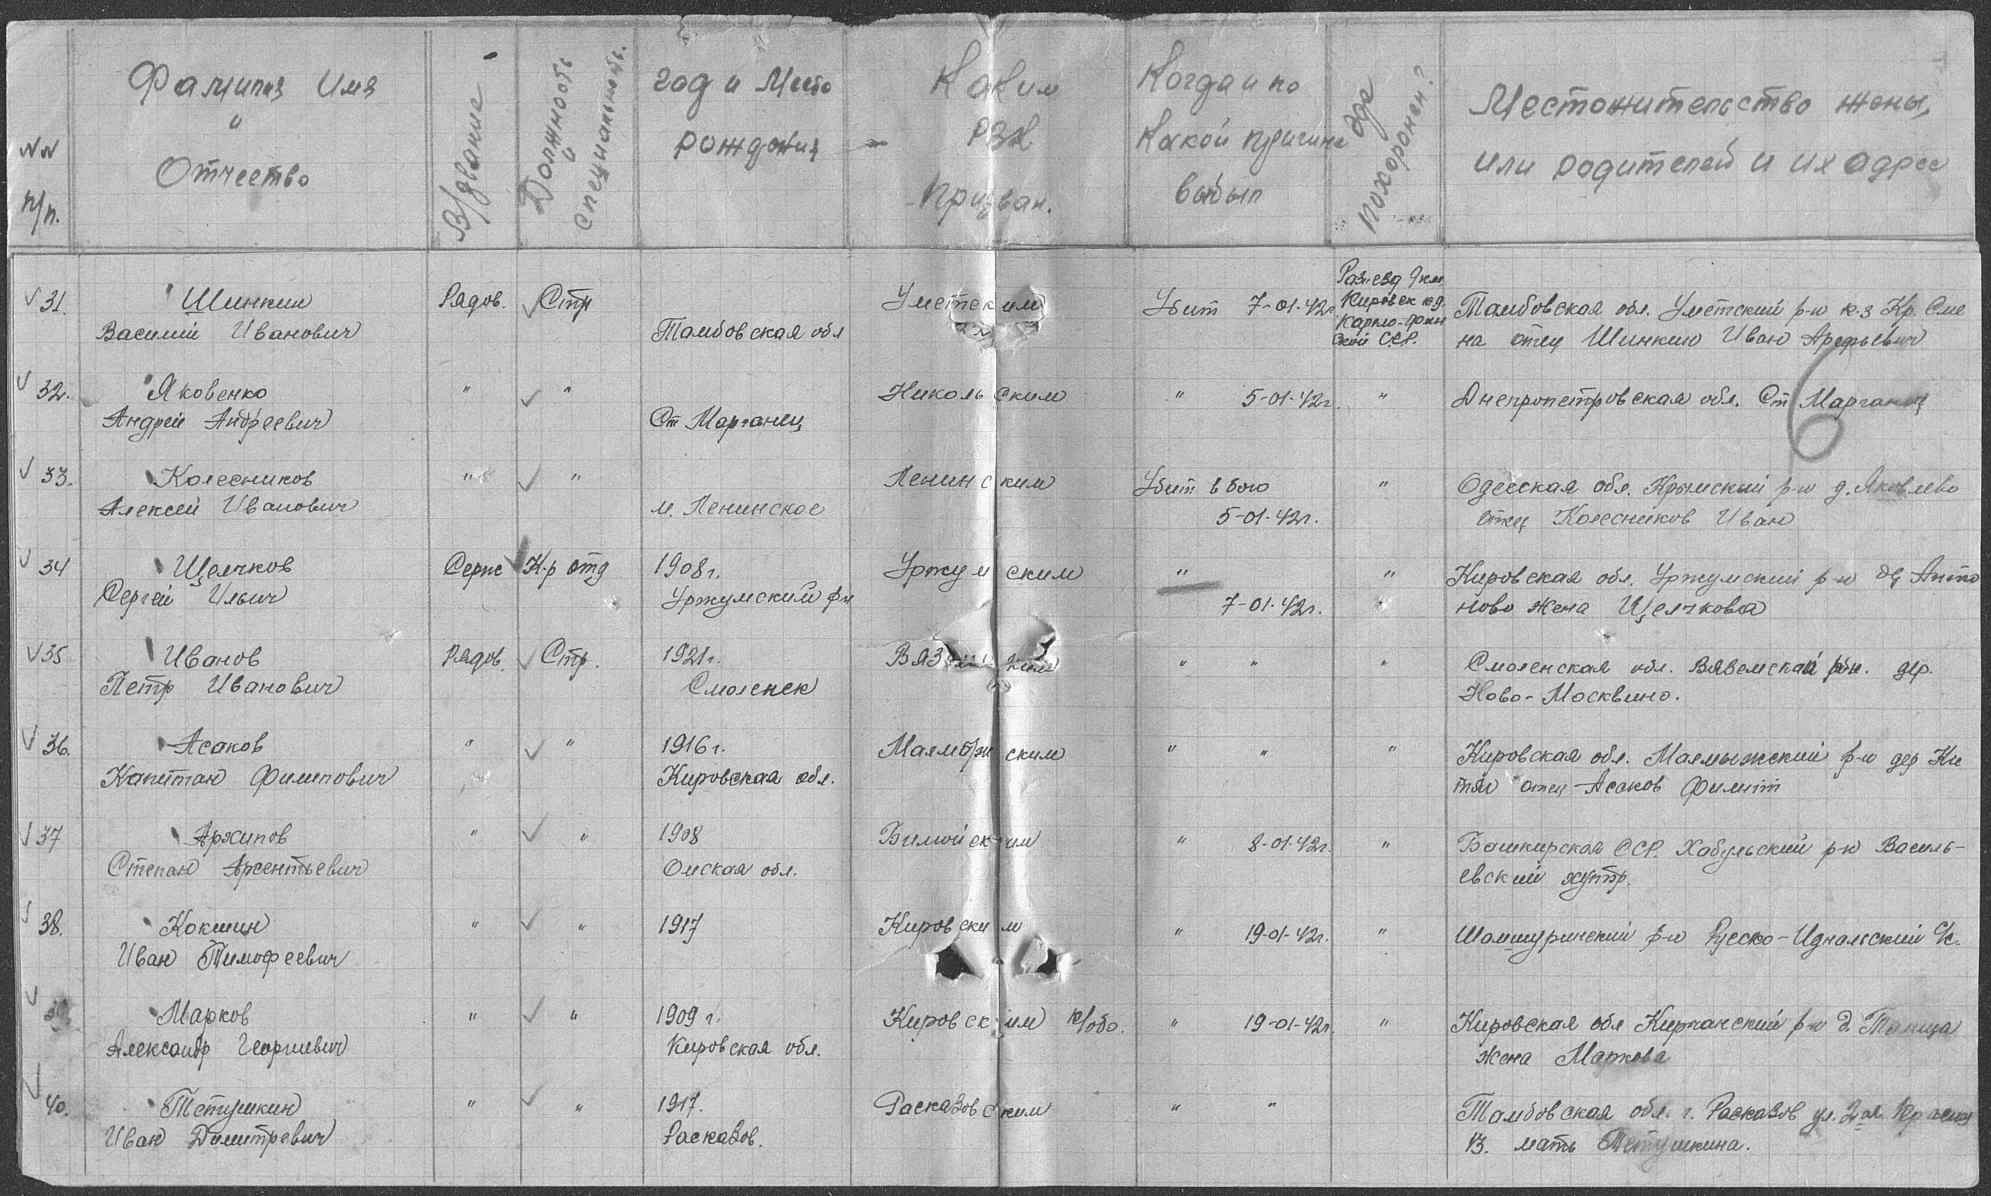 NN п/п.
Фамилия Имя
и
Отчество
В/звание
Должность и специальность.
год и Место рождения
Каким РВК Призван.
Когда и по какой причине выбыл
Где похоронен?
Местожительство жены, или родителей и их адрес
31. Шинкин Рядов. Стр Уметским Убит 7-01-42г. Разъезд 9 км Кировск ж.д. Карело-Фин ской ССР. Тамбовская обл. Уметский р-н к-з Кр. Сме
Василий Иванович Тамбовская обл на отец Шинкин Иван Арефьевич
32. Яковенко " " Никольским " 5-01-42г. " Днепропетровская обл. Ст Марганец
Андрей Андреевич Ст Марганец
6
33. Колесников " " Ленинским Убит в бою " Одесская обл. Крымский р-н д. Яковлево
Алексей Иванович м. Ленинское 5-01-42г. отец Колесников Иван
34 Щелчков Серж К-р отд 1908г. Уржумским " " Кировская обл. Уржумский р-н
Сергей Ильич Уржумский рн 7-01-42г. ново жена Щелчкова
35 Иванов Рядов. Стр. 1921г. " " " Смоленская обл. Вяземский рн. дер.
Петр Иванович Смоленск Ново-Москвино.
36. Асаков " " 1916г. " " " Кировская обл. Малмыжский р-н дер Ки
Капитан Филипович Кировская обл. тяк отец Асаков Филипп
37 Архипов " " 1908 " 8-01-42г. " Башкирская ССР. Хабульский р-н Василь-
Степан Арсентьевич Омская обл. евский хутор.
38. Кокшин " " 1917 Кировским " 19-01-42г. " Шалшуринский р-н С/с.
Иван Тимофеевич
Марков " " 1909 г. Кировским " 19-01-42г. " Кировская обл д.
Александр Георгиевич Кировская обл. жена Маркова
40. Петушкин " " 1917. Расказовским " " Тамбовская обл. г. Расказов ул. 2ая
Иван Димитревич Расказов. 13. мать Петушкина.